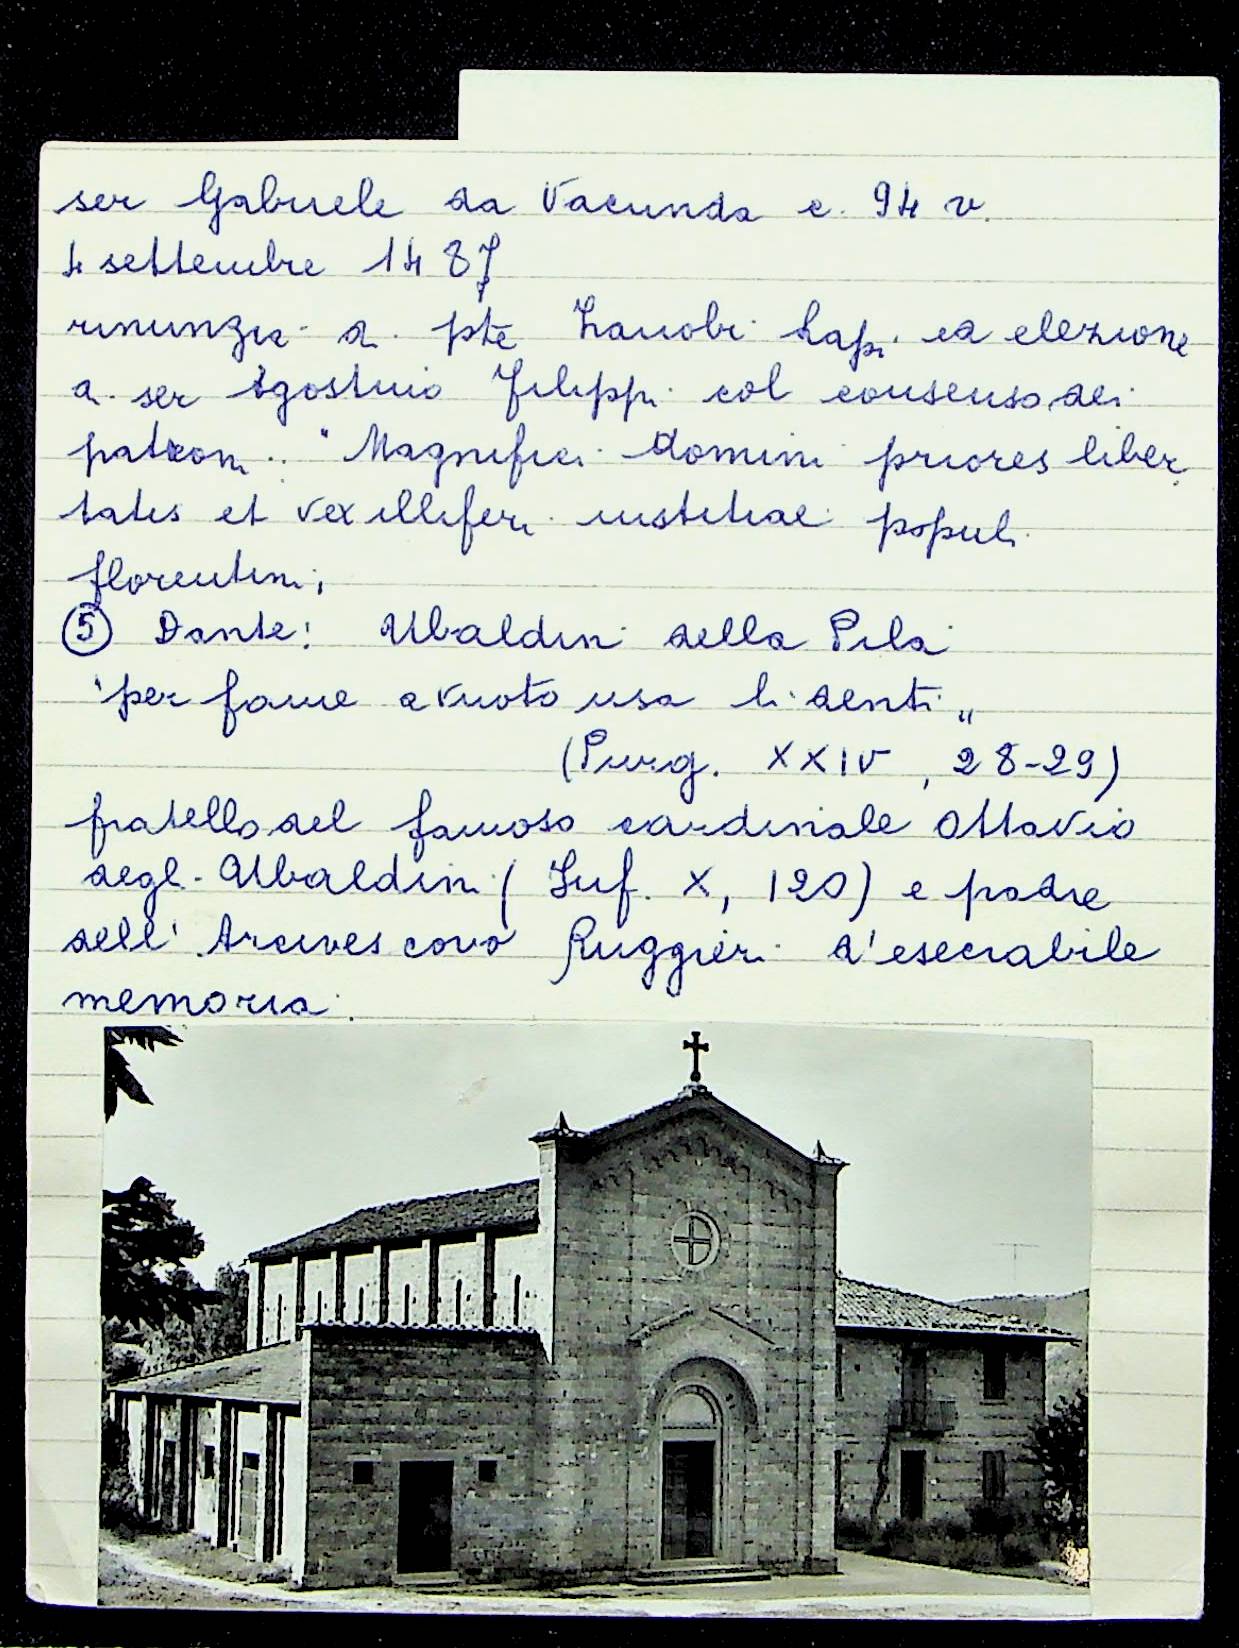 ser Gabriele da Vacunda c. 94 v.
4 settembre 1487
rinunzia a pte Zanobi Lapi ed elezione
a ser Agostino Filippi col consenso dei
patroni "Magnifici domini priores liber
tatis et vexilliferi iustitiae populi
florentini;
⑤ Dante: Ubaldini della Pila
"per fame a vuoto usa li denti"
(Purg. XXIV, 28-29)
fratello del famoso cardinale Ottavio
degli Ubaldini (Inf. X, 120) e padre
dell'Arcivescovo Ruggieri d'esecrabile
memoria.